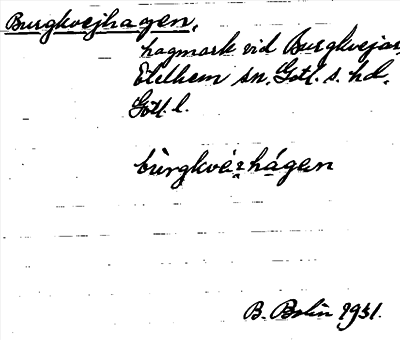 Burgkvejhagen,
hagmark vid Burgkvejar,
Etelhem sn. Gotl. s. hd.
Gotl. l.
bùrgkvéʒhágen
B. Bolin 1931.